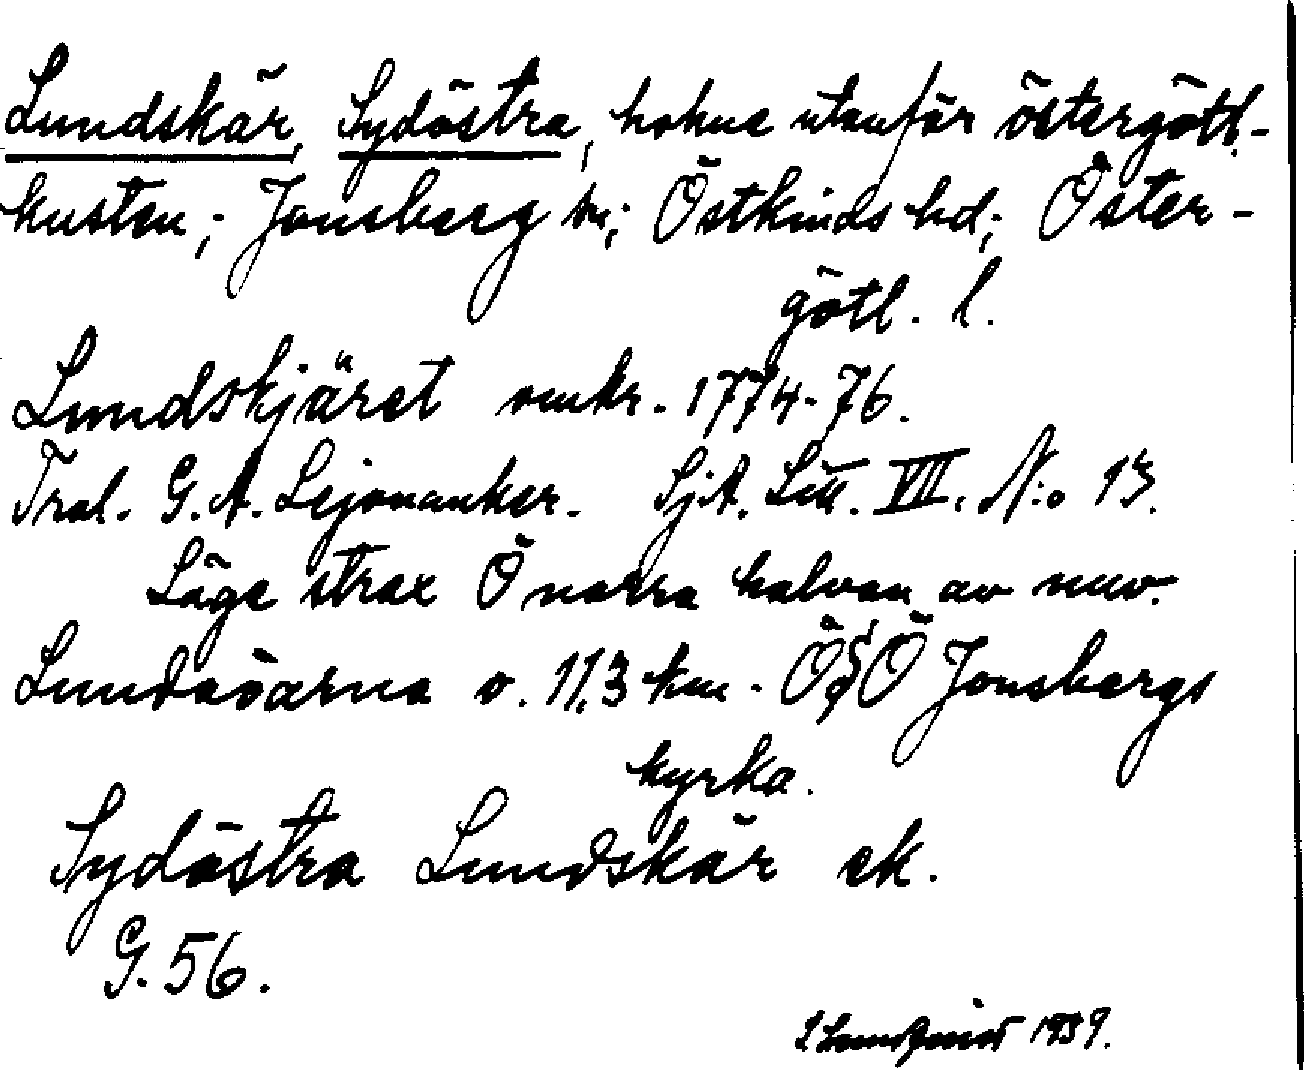 Lundskär, Sydöstra, holme utanför östergötl.-
kusten; Jonsberg sn; Östkinds hd; Öster-
götl. l.
Lundskjäret omkr. 1774-76.
Tral. G. A. Lejonanker. SjA. Litt. VII. N:o 13.
Läge strax Ö norra halvan av nuv.
Lundaöarna o. 11,3 km. ÖSÖ Jonsbergs
kyrka.
Sydöstra Lundskär ek.
G. 56.
Lundquist 1939.